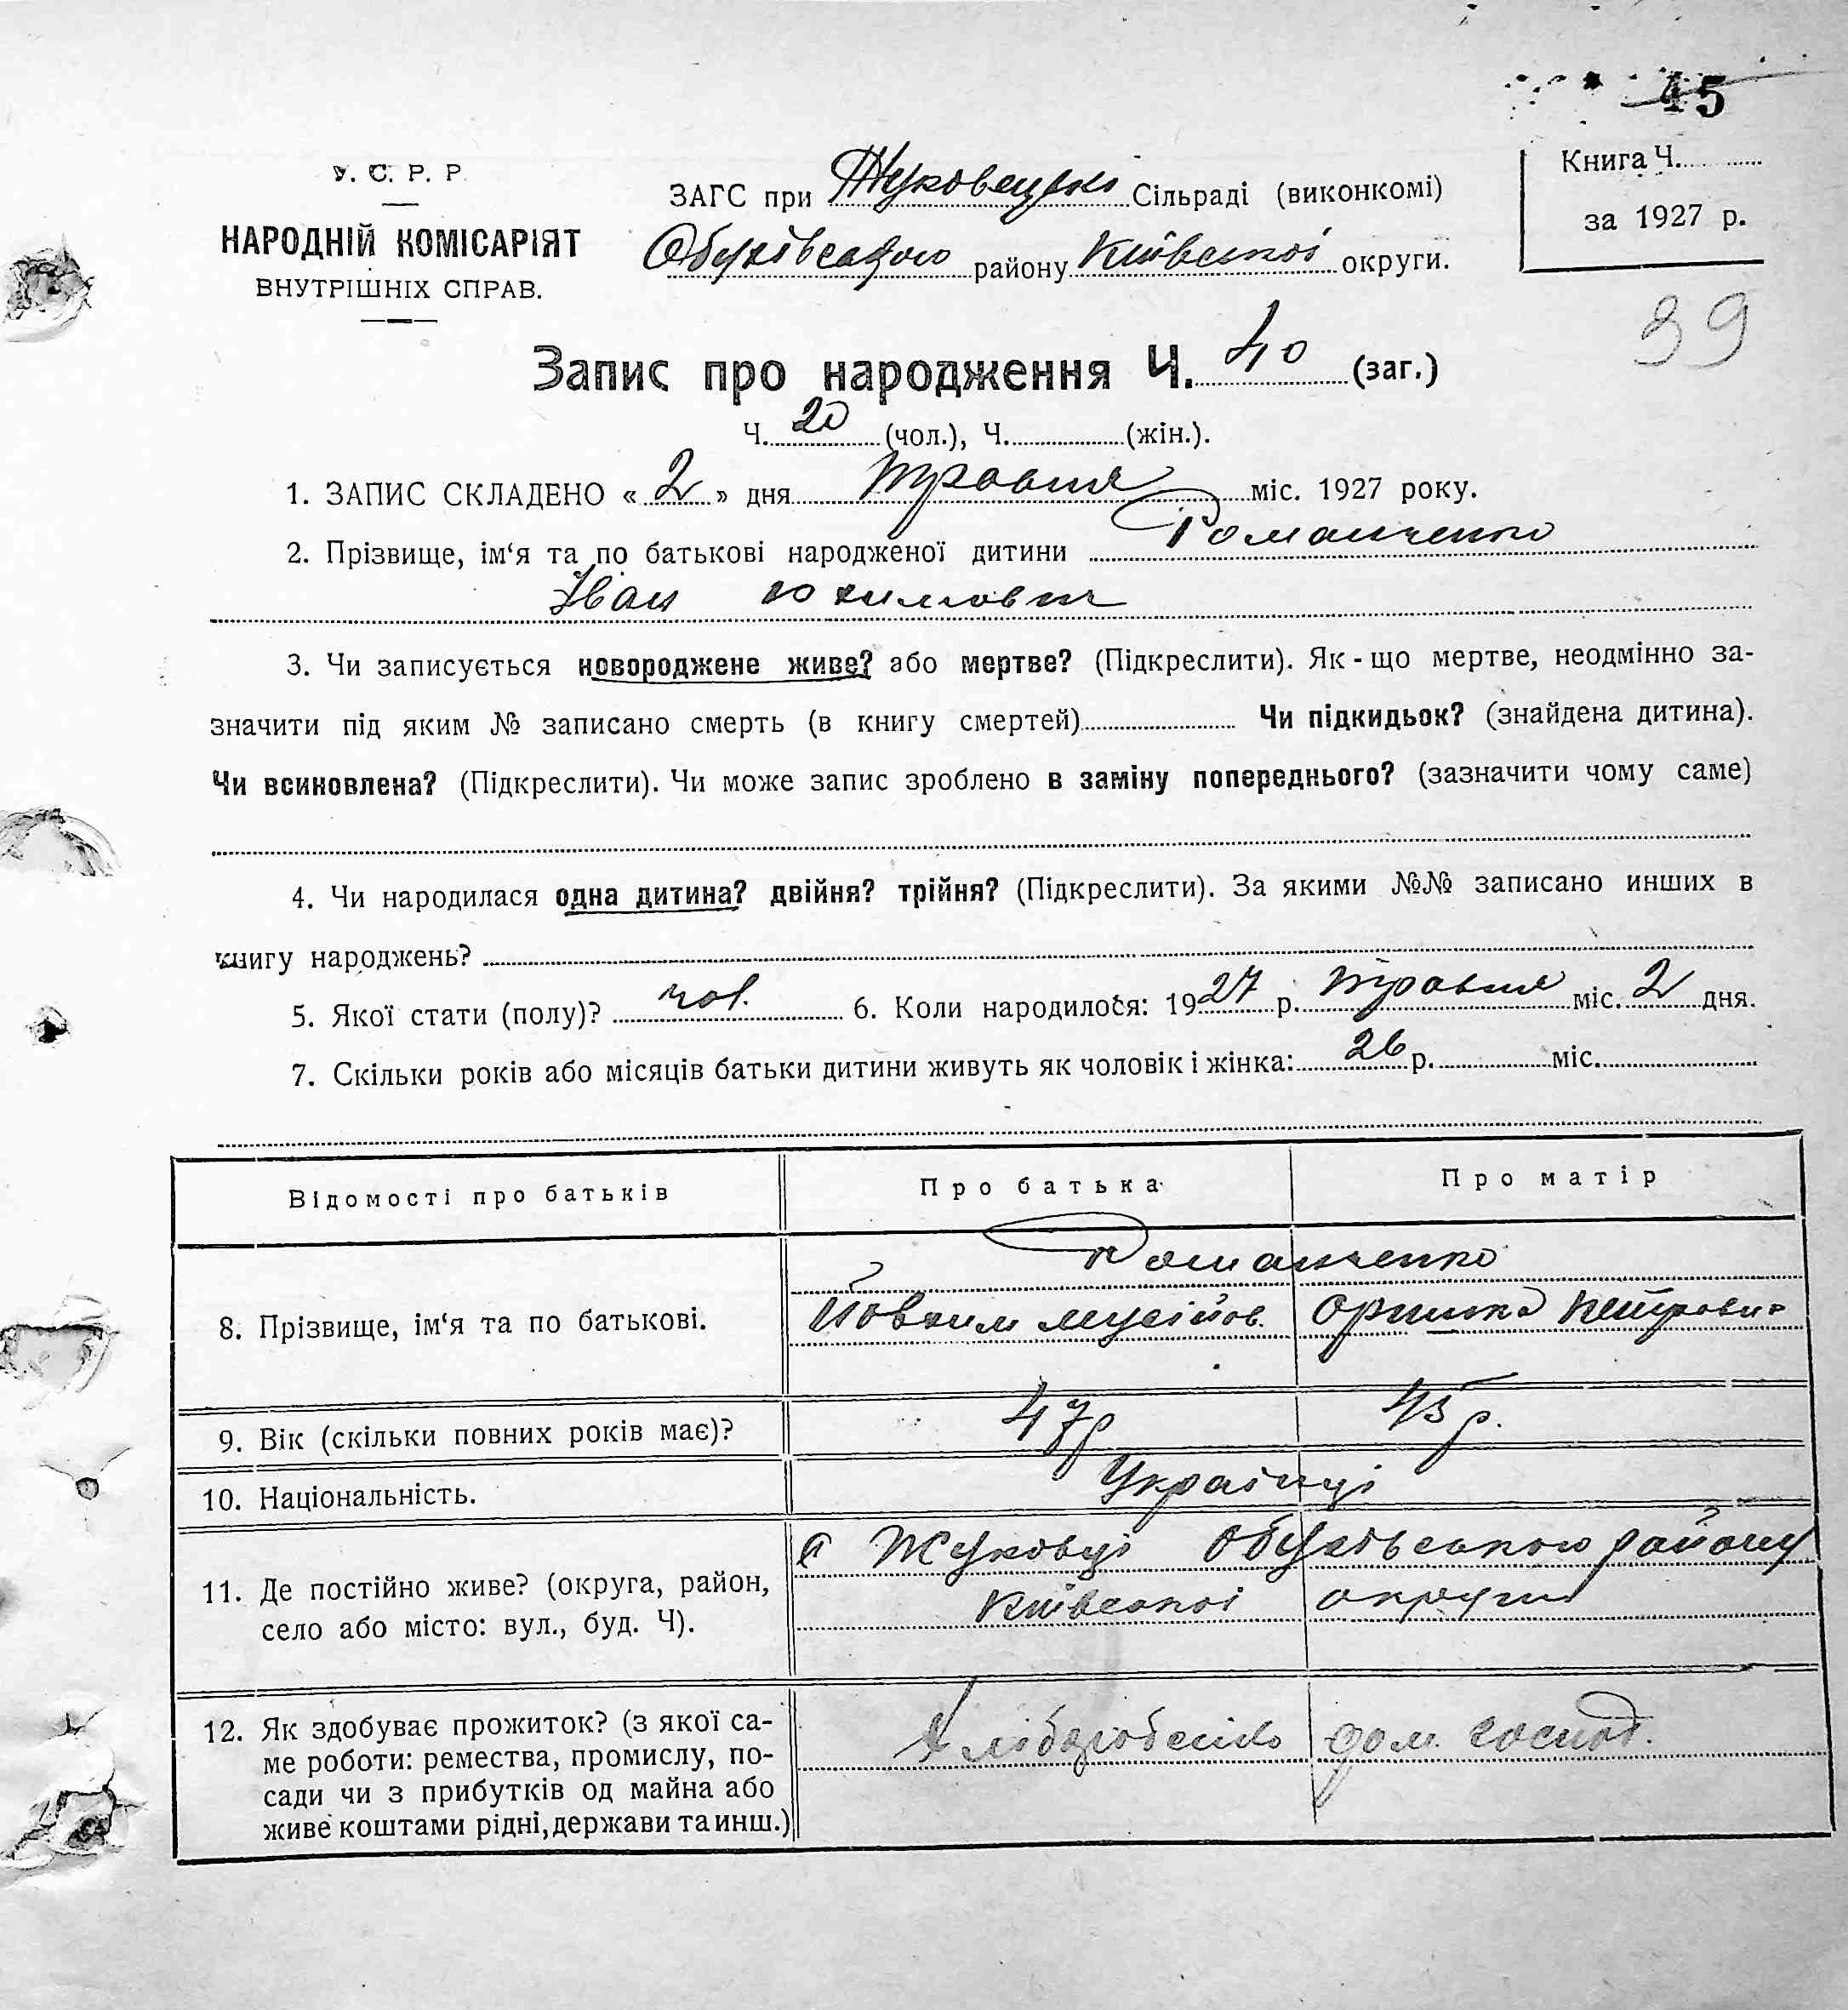 45
У. С. Р. Р.
НАРОДНІЙ КОМІСАРІЯТ
ВНУТРІШНІХ СПРАВ.
ЗАГС при Жуковецькі Сільраді (виконкомі)
Обухівського району Київської округи.
Книга Ч.
за 1927 р.
39
Запис про народження Ч. 40 (заг.)
Ч. 20 (чол.), Ч. (жін.).
1. ЗАПИС СКЛАДЕНО « 2 » дня травня міс. 1927 року.
2. Прізвище, ім‘я та по батькові народженої дитини Романченко
Іван Юхимович
3. Чи записується новороджене живе? або мертве? (Підкреслити). Як-що мертве, неодмінно за-
значити під яким № записано смерть (в книгу смертей) Чи підкидьок? (знайдена дитина).
Чи всиновлена? (Підкреслити). Чи може запис зроблено в заміну попереднього? (зазначити чому саме)
4. Чи народилася одна дитина? двійня? трійня? (Підкреслити). За якими №№ записано инших в
книгу народжень?
5. Якої стати (полу)? чол. 6. Коли народилося: 1927 р. травня міс. 2 дня.
7. Скільки років або місяців батьки дитини живуть як чоловік і жінка: 26 р. міс.
Відомості про батьків Про батька Про матір
Романченко
8. Прізвище, ім‘я та по батькові. Мусійов. Петровн
9. Вік (скільки повних років має)? 47р 45 р.
10. Національність. Українці
11. Де постійно живе? (округа, район,
село або місто: вул., буд. Ч).
с Жуковці Обухівського району
Київської округи
12. Як здобуває прожиток? (з якої са-
ме роботи: ремества, промислу, по-
сади чи з прибутків од майна або
живе коштами рідні, держави та инш.)
Хліборобство дом. господ.